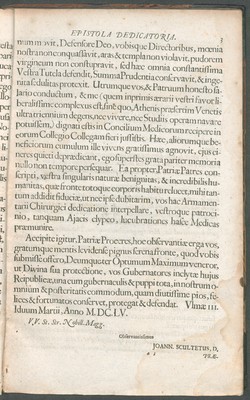 EPISTOLA DEDICATORIA. 3
Defensore Deo, vobisque Directoribus, mœnia
nostra non conquassavit, aras & templa non violavit, pudorem
virgineum non constupravit, sed hæc omnia constantissima
Vestra Tutela defendit, Summa Prudentia conservavit, & inge-
nita fidelitas protexit. Utrumque vos, & Patruum honesto sa-
lario conductum, & me (quem in primis
beralissime complexus est,
ultra triennium degens, nec vivere, nec Studiis operam navare
potuissem, dignati estis in Concilium Medicorum recipere in
eorum Collegio Collegam fieri jussistis. Hæc, aliorumque be-
neficiorum cumulum ille vivens gratissimus agnovit,
neres quieti deprædicant, ego superstes grata pariter memoria
nullo non tempore persequar. Ea propter, Patriæ Patres con-
scripti, vestra singularis naturæ benignitas, & incredibilis hu-
manitas, quæ fronte totoque corporis habitu relucet, mihi tan-
tum addidit fiduciæ, ut nec ipse dubitarim, vos hac Armamen-
tarii Chirurgici dedicatione interpellare, vestroque patroci-
nio, tanquam Ajacis clypeo, lucubrationes hasce Medicas
præmunire.
Accipite igitur, Patriæ Proceres, hoc observantiæ erga vos,
gratæque mentis levidense pignus serena fronte, quod vobis
submisse offero, Deumque ter Optimum Maximum veneror,
ut Divina sua protectione, vos Gubernatores inclytæ hujus
Reipublicæ, una cum gubernaculis & puppi tota, in nostrum o-
mnium & posteritatis commodum, quam diutissime pios, fe-
lices & fortunatos conservet, protegat & defendat. Vlmæ III.
Iduum Martii, Anno M. DC. LV.
V.V. St. Str. Nobill. Magg.
Observantissimus
JOANN. SCULTETUS, D.
PRÆ-